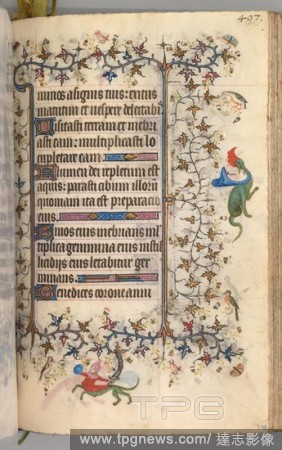 497.
minos a signis tuis: exitus
matutini et vespere delectab
Visitasti terram et inebri
asti eam: multiplicasti lo
cupletare eam
Flumen dei repletum est
aquis: parasti cibum illoru
quoniam ita est preparacio
eius
Rivos eius inebrians mul
tiplica genimina eius in stil
licidijs eius letabitur ger
minans
Benedices corone anni
TPG
www.tpgnews.com / 達志影像